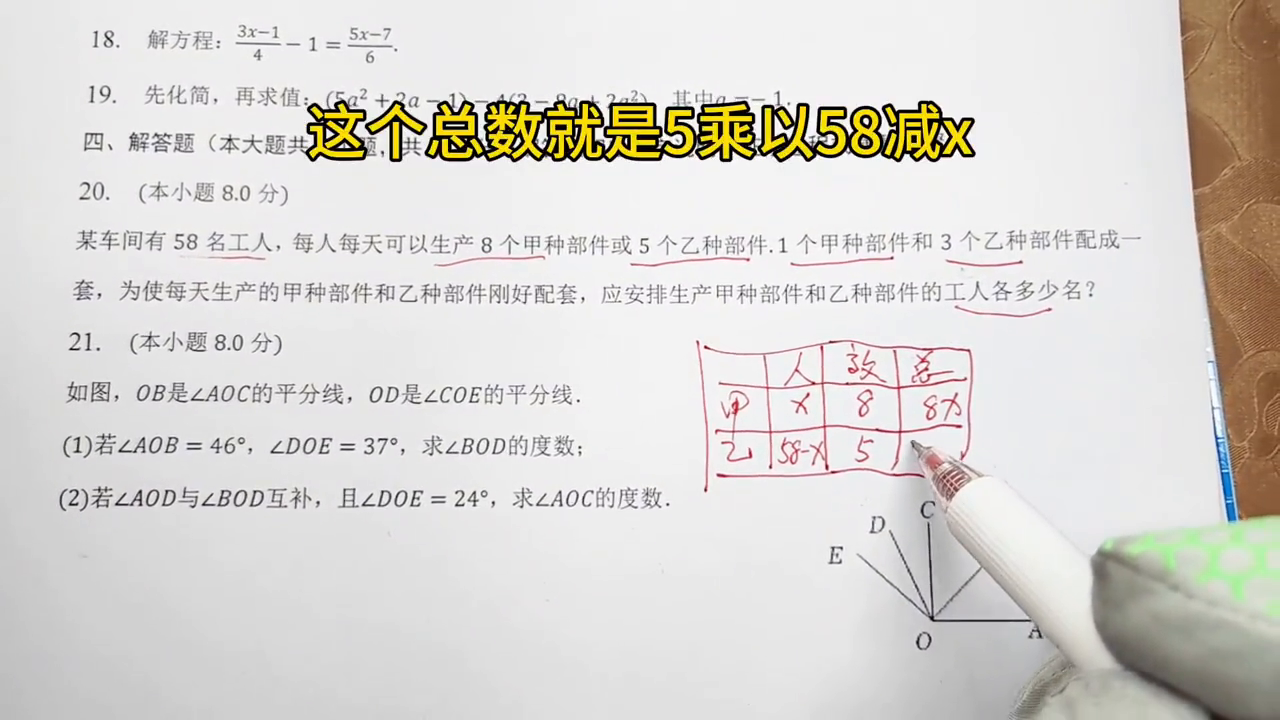 18. 解方程：(3x−1)/4 − 1 = (5x−7)/6.
19. 先化简，再求值：(5a² + 2a − 1) − 4(3 − 8a + 2a²)，其中a = −1.
这个总数就是5乘以58减x
四、解答题（本大题共
20. (本小题 8.0 分)
某车间有 58 名工人，每人每天可以生产 8 个甲种部件或 5 个乙种部件.1 个甲种部件和 3 个乙种部件配成一
套，为使每天生产的甲种部件和乙种部件刚好配套，应安排生产甲种部件和乙种部件的工人各多少名？
21. (本小题 8.0 分)
如图，OB是∠AOC的平分线，OD是∠COE的平分线.
(1)若∠AOB = 46°，∠DOE = 37°，求∠BOD的度数；
(2)若∠AOD与∠BOD互补，且∠DOE = 24°，求∠AOC的度数.
人 效 总
甲 x 8 8x
乙 58-x 5
C
D
E
O
A